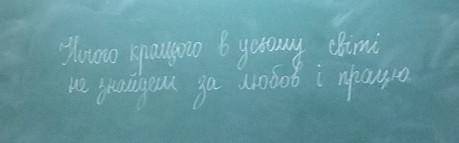 Нічого кращого в усьому світі
не знайдеш за любов і працю